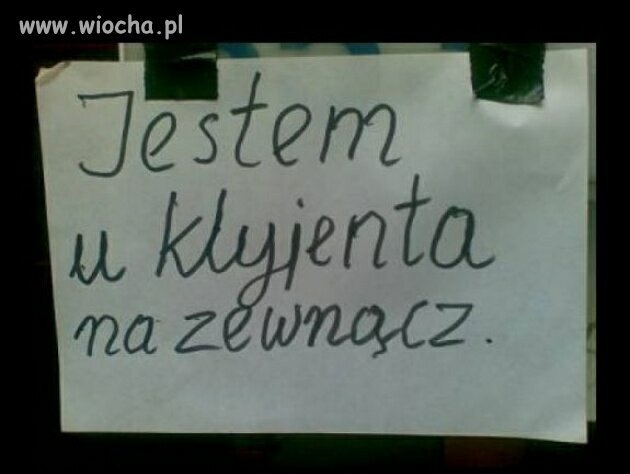 www.wiocha.pl
Jestem
u klyjenta
na zewnącz.